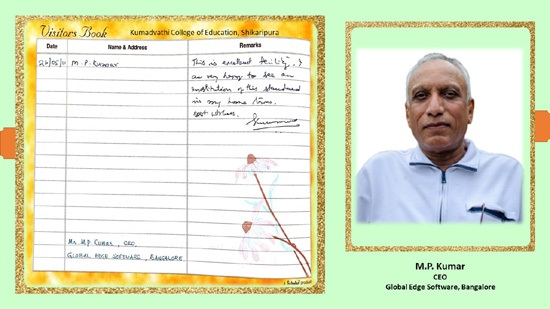 Visitors Book
Kumadvathi College of Education, Shikaripura
Date
Name & Address
Remarks
M. P. KUMAR
This is excellent facility. I
am very happy to see an
institution of this standard
in my home town.
Best wishes.
Mr. M.P. KUMAR, CEO,
GLOBAL EDGE SOFTWARE, BANGALORE
M.P. Kumar
CEO
Global Edge Software, Bangalore